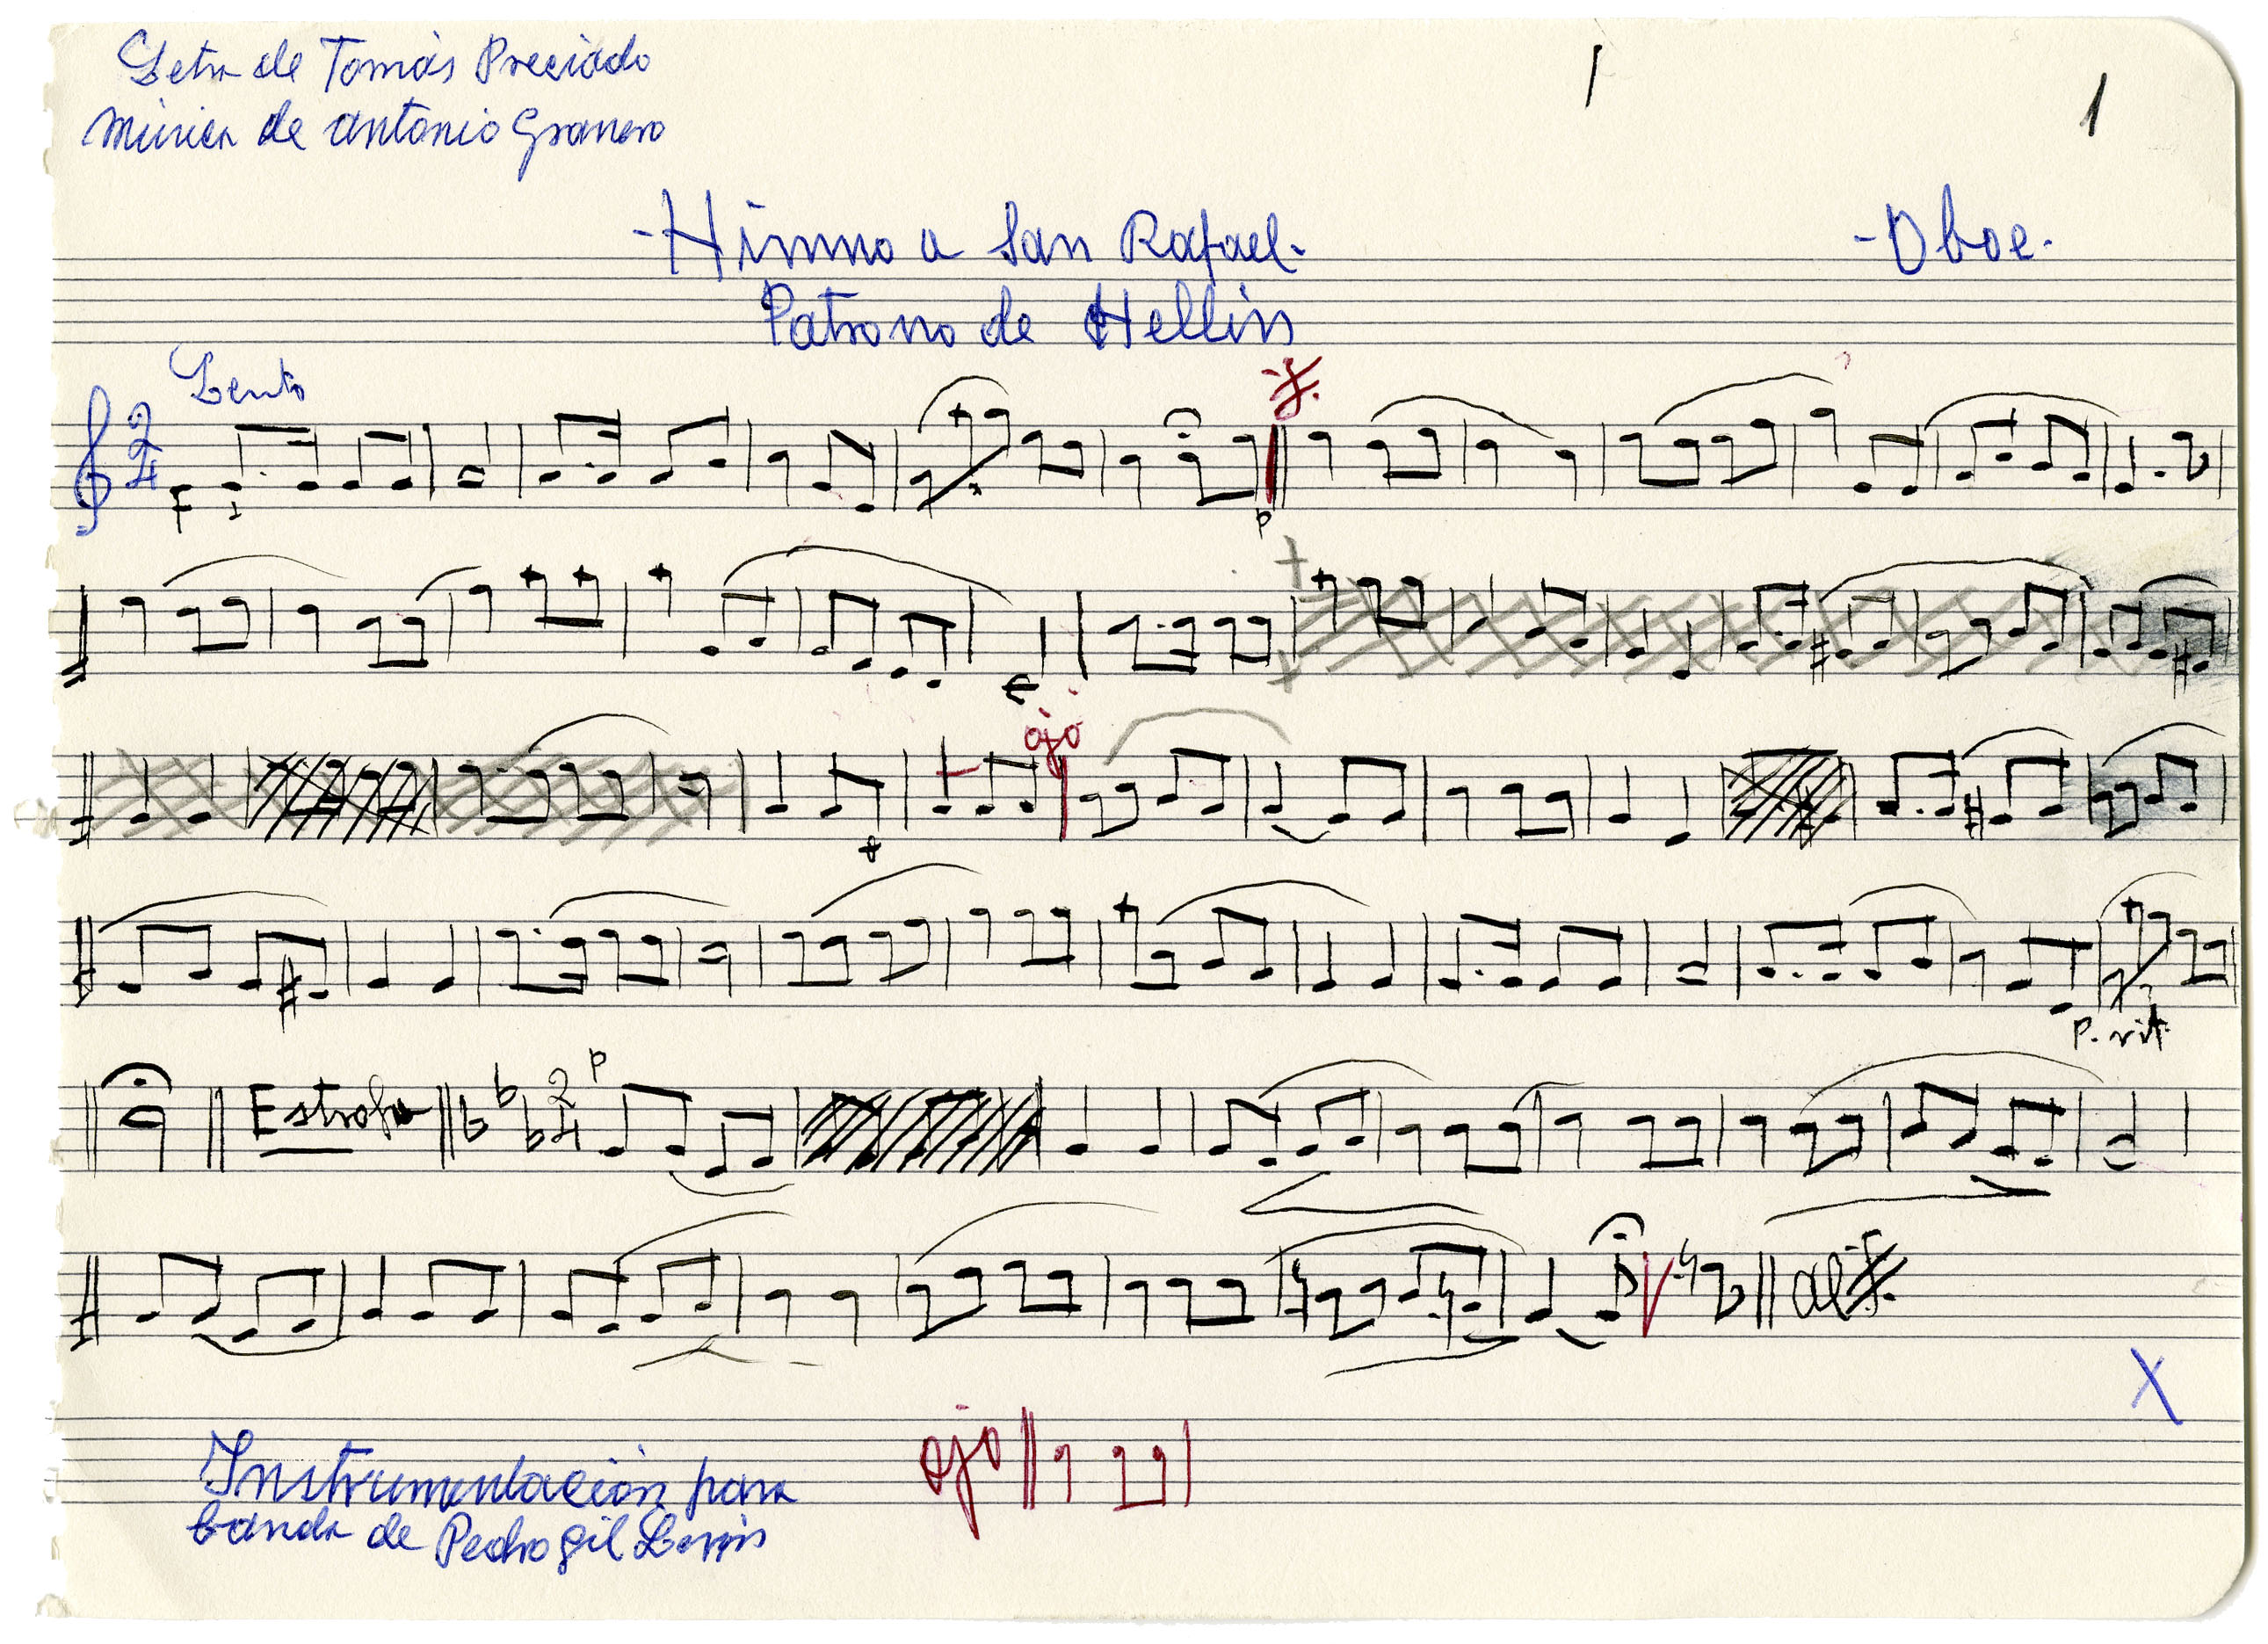 Letra de Tomás Preciado
Música de Antonio Granero
1
1
-Himno a San Rafael-
-Oboe-
Patrono de Hellín
Lento
2
4
F
p
ojo
p. rit.
Estrofa
2
4
p
al
X
Instrumentación para
banda de Pedro Gil
ojo